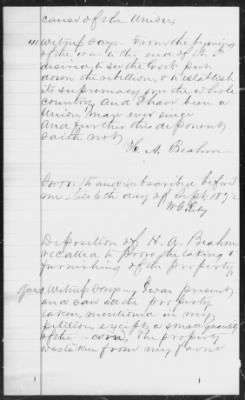 cause of the Union
Witness says From the beginning
of the war to the end of it I
desired to see the Govt put
down the rebellion, & establish
its supremacy over the whole
country and I have been a
Union man ever since
And further this deponent
saith not
H. A. Beahm
Sworn to and subscribed before
me this 6th day of Sept. 1872
Deposition of H. A. Beahm
recalled to prove the taking &
furnishing of the property
Witness Says I was present
and saw all the property
taken, mentioned in my
petition except a small quantity
of the corn, The property
was taken from my farm